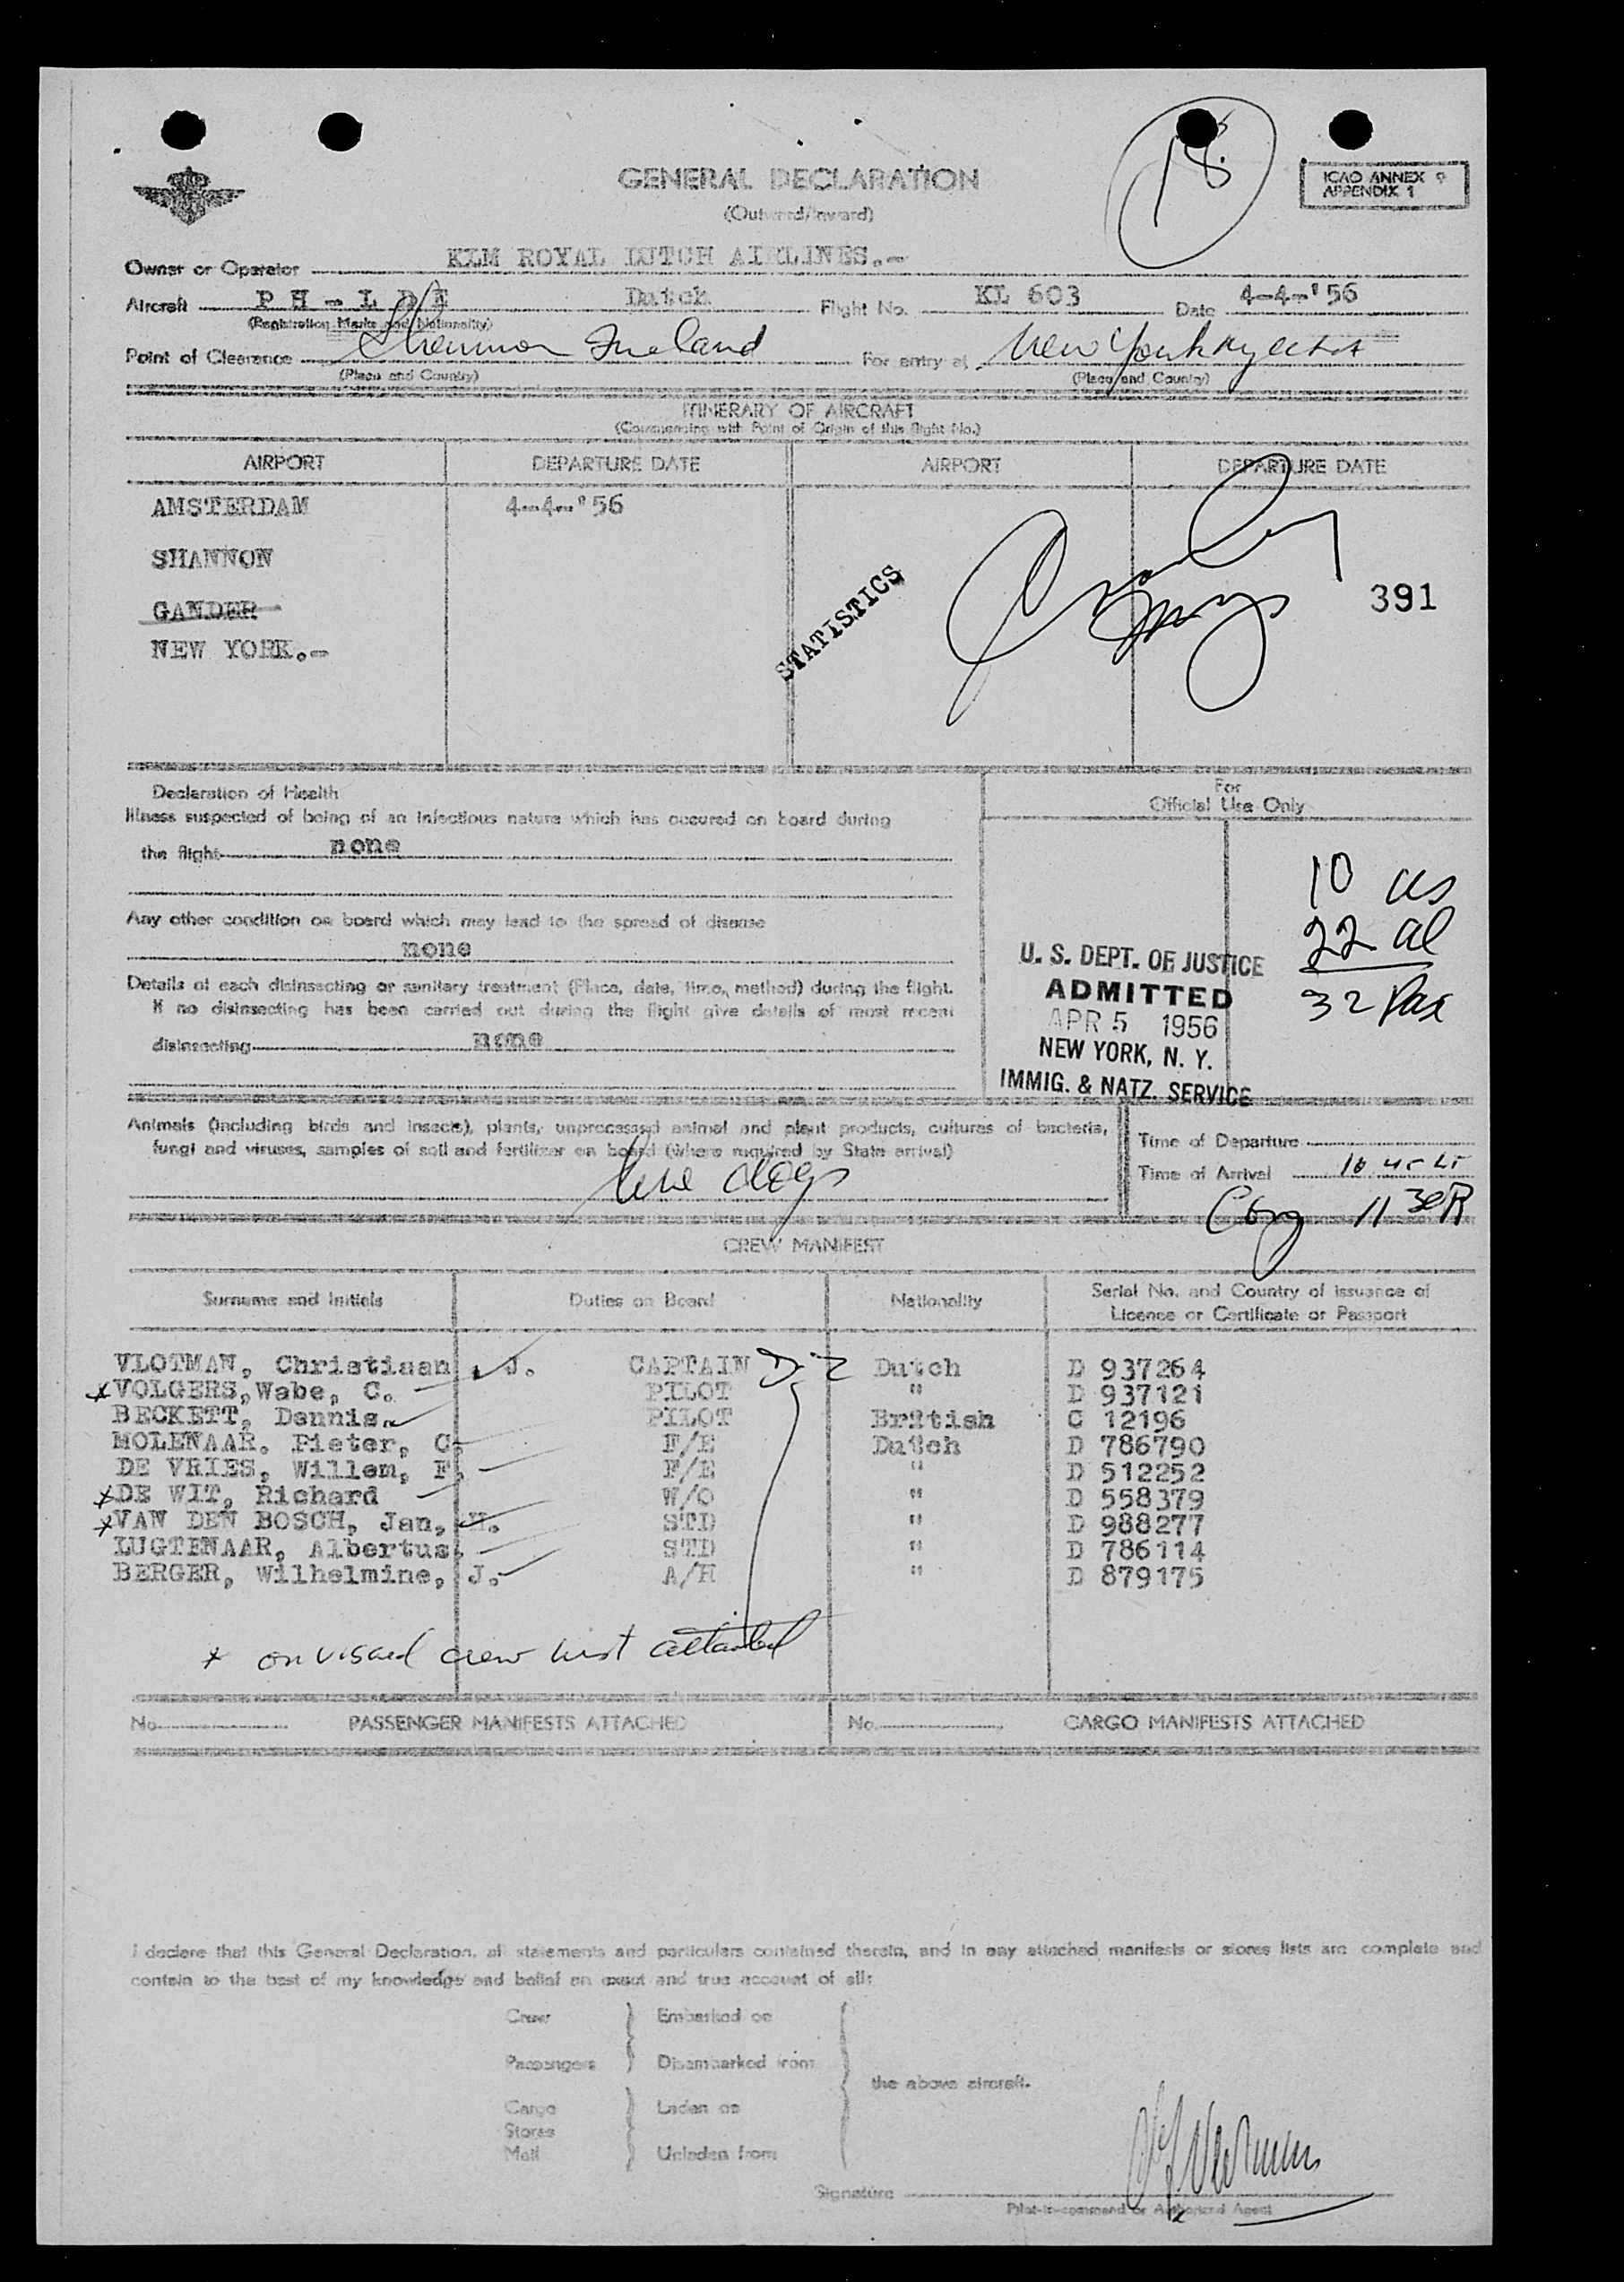 18
GENERAL DECLARATION
(Outward/Inward)
ICAO ANNEX 9
APPENDIX 1
Owner or Operator KLM ROYAL DUTCH AIRLINES.-
Aircraft PH-LDE Dutch Flight No. KL 603 Date 4-4-'56
(Registration Marks and Nationality)
Point of Clearance Shannon Ireland For entry at New York
(Place and Country) (Place and Country)
ITINERARY OF AIRCRAFT
(Commencing with Point of Origin of this flight No.)
AIRPORT DEPARTURE DATE AIRPORT DEPARTURE DATE
AMSTERDAM 4-4-'56
SHANNON
GANDER
NEW YORK.-
STATISTICS
391
Declaration of Health
Illness suspected of being of an infectious nature which has occured on board during
the flight none
Any other condition on board which may lead to the spread of disease
none
Details of each disinsecting or sanitary treatment (Place, date, time, method) during the flight.
If no disinsecting has been carried out during the flight give details of most recent
disinsecting none
For
Official Use Only
10 us
22 al
32 Pax
U. S. DEPT. OF JUSTICE
ADMITTED
APR 5 1956
NEW YORK, N. Y.
IMMIG. & NATZ. SERVICE
Animals (including birds and insects), plants, unprocessed animal and plant products, cultures of bacteria,
fungi and viruses, samples of soil and fertilizer on board (Where required by State arrival)
dogs
Time of Departure
Time of Arrival
CREW MANIFEST
Surname and Initials Duties on Board Nationality Serial No. and Country of issuance of
Licence or Certificate or Passport
VLOTMAN, Christiaan, J. CAPTAIN Dutch D 937264
*VOLGERS, Wabe, C. PILOT " D 937121
BECKETT, Dennis. PILOT British C 12196
MOLENAAR, Pieter, C. F/E Dutch D 786790
DE VRIES, Willem, F. F/E " D 512252
*DE WIT, Richard W/O " D 558379
*VAN DEN BOSCH, Jan, H. STD " D 988277
LUGTENAAR, Albertus. STD " D 786114
BERGER, Wilhelmine, J. A/H " D 879175
* on visaed crew list attached
No. PASSENGER MANIFESTS ATTACHED No. CARGO MANIFESTS ATTACHED
I declare that this General Declaration, all statements and particulars contained therein, and in any attached manifests or stores lists are complete and
contain to the best of my knowledge and belief an exact and true account of all:
Crew Embarked on
Passengers Disembarked from
the above aircraft.
Cargo Laden on
Stores
Mail Unladen from
Signature
Pilot-in-command or Authorized Agent